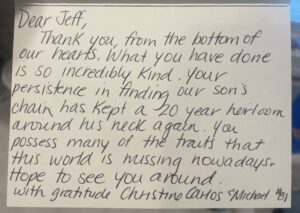 Dear Jeff,
Thank you, from the bottom of
our hearts. What you have done
is so incredibly kind. Your
persistence in finding our son's
chain has kept a 20 year heirloom
around his neck again. You
possess many of the traits that
this world is missing nowadays.
Hope to see you around.
with gratitude Christina Carlos & Michael